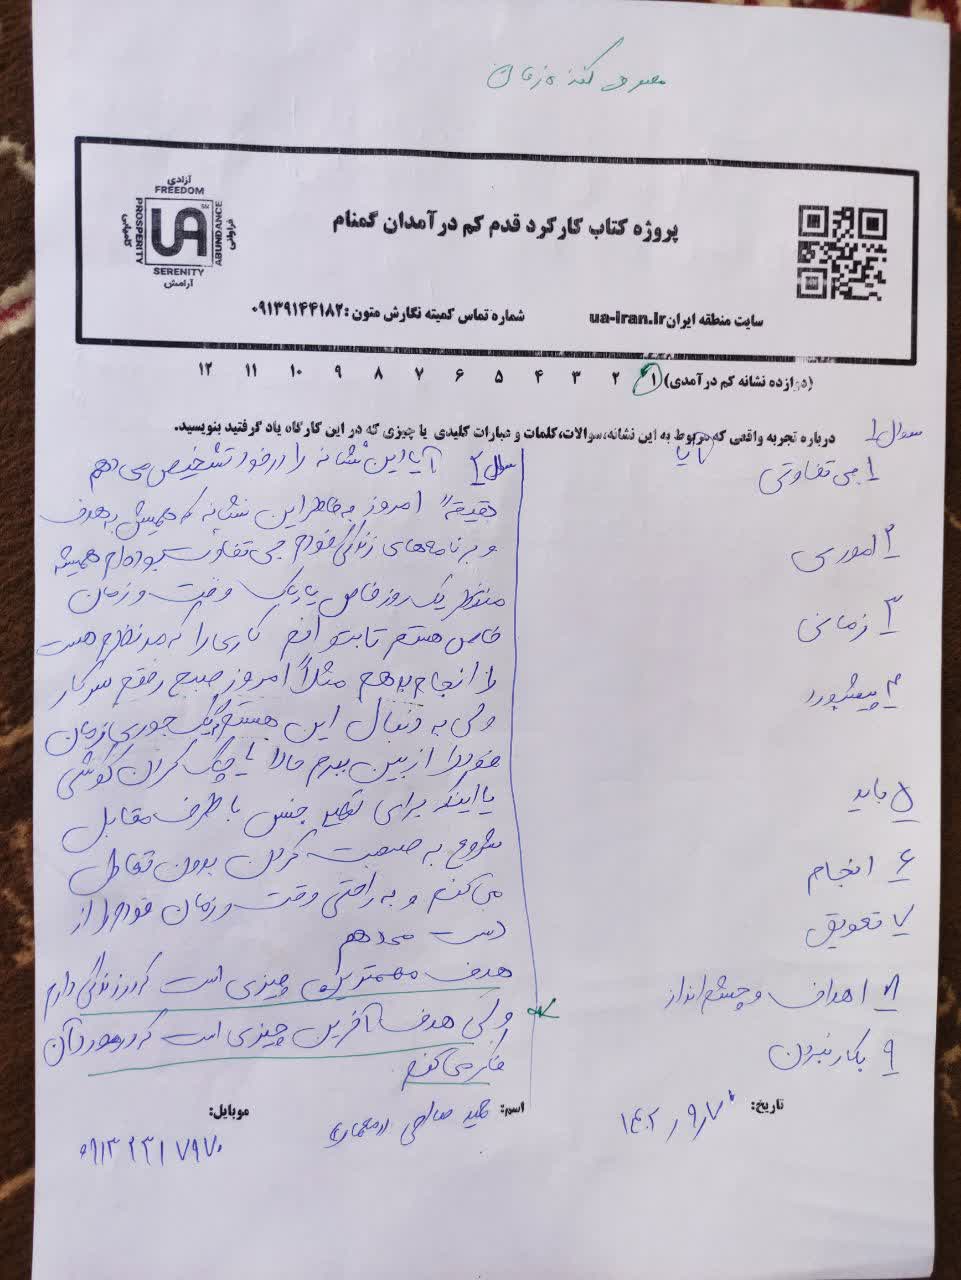 مصرف کننده زمان
آزادی
FREEDOM
PROSPERITY
کامیابی
UA
ABUNDANCE
فراوانی
SERENITY
آرامش
پروژه کتاب کارکرد قدم کم درآمدان گمنام
سایت منطقه ایران ua-iran.ir
شماره تماس کمیته نگارش متون :۰۹۱۳۹۱۴۴۱۸۲
(دوازده نشانه کم درآمدی) ۱ ۲ ۳ ۴ ۵ ۶ ۷ ۸ ۹ ۱۰ ۱۱ ۱۲
سوال ۱ درباره تجربه واقعی که مربوط به این نشانه،سوالات،کلمات و عبارات کلیدی یا چیزی که در این کارگاه یاد گرفتید بنویسید.
۱ بی تفاوتی
۲ اموری
۳ زمانی
۴ پیشبرد
۵ باید
۶ انجام
۷ تعویق
۸ اهداف و چشم انداز
۹ بکار نبردن
سوال ۲ آیا این نشانه را در خود تشخیص می دهم
حقیقتاً امروز به خاطر این نشانه که همیش به هدف
و برنامه های زندگی خودم بی تفاوت بوده ام همیشه
منتظر یک روز خاص یا یک وقت و زمان
خاص هستم تا بتوانم کاری را که مد نظرم هست
را انجام بدهم مثلاً امروز صبح رفتم سر کار
ولی به دنبال این هستم یک جوری زمان
خودرا از بین ببرم حالا با چک کردن گوشی
یا اینکه برای جنس با طرف مقابل
شروع به صحبت کردن بدون تعامل
می کنم و به راحتی وقت و زمان خودم را از
دست میدهم
هدف مهمترین چیزی است که در زندگی دارم
ولی هدف آخرین چیزی است که در مورد آن
فکر می کنم
تاریخ: ۱۴۰۲/۹/۷
اسم: صالحی
موبایل:
۰۹۱۳۲۳۱۷۹۷۰